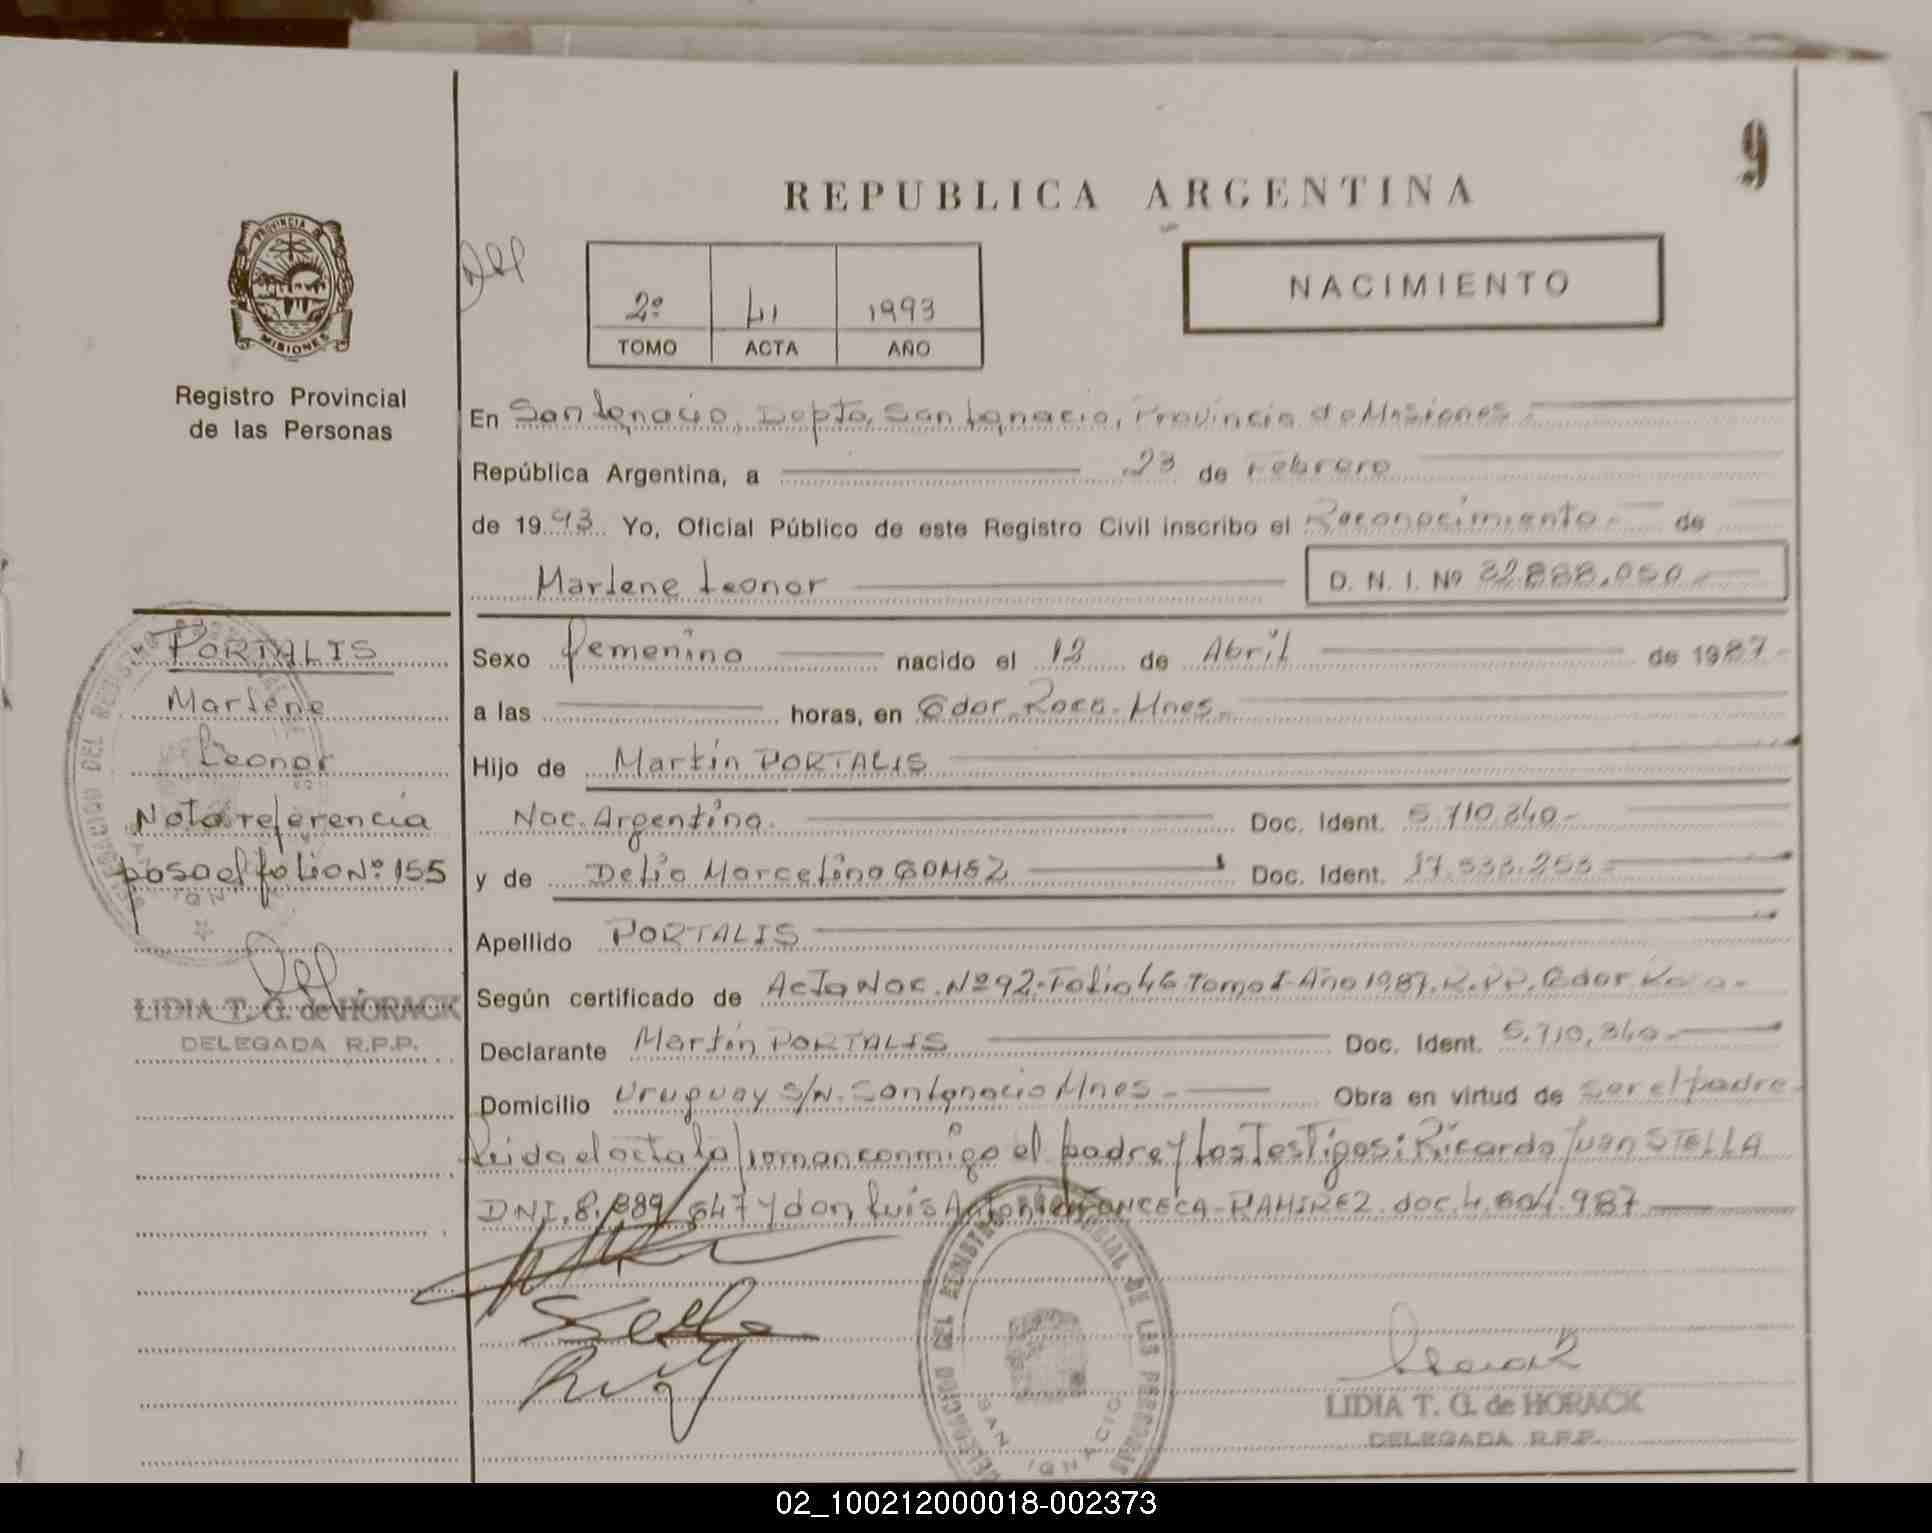 9
REPUBLICA ARGENTINA
PROVINCIA DE
MISIONES
Registro Provincial
de las Personas
2º 41 1993
TOMO ACTA AÑO
NACIMIENTO
En San Ignacio, Depto. San Ignacio, Provincia de Misiones
República Argentina, a 23 de Febrero
de 1993. Yo, Oficial Público de este Registro Civil inscribo el Reconocimiento de
Marlene Leonor D. N. I. Nº 32.888.050
Sexo femenino nacido el 12 de Abril de 1987
a las horas, en Gdor. Roca. Mnes.
Hijo de Martín PORTALIS
Nac. Argentina. Doc. Ident. 5.710.340
y de Delia Marcelina GOMEZ Doc. Ident. 17.533.253
Apellido PORTALIS
Según certificado de Acta Nac. Nº 92-Folio 46 Tomo I-Año 1987. R.P.P. Gdor. Roca
Declarante Martín PORTALIS Doc. Ident. 5.710.340
Domicilio Uruguay S/N. San Ignacio Mnes Obra en virtud de ser el padre
Leida el acta la firman conmigo el padre y los Testigos: Ricardo Juan STELLA
DNI. 8.889.647 y don Luis Antonio RAMIREZ doc. 4.804.987
PORTALIS
Marlene
Leonor
Nota referencia
pasa al folio Nº 155
LIDIA T. G. de HORACK
DELEGADA R.P.P.
DELEGACION DEL REGISTRO PROVINCIAL DE LAS PERSONAS
SAN IGNACIO
LIDIA T. G. de HORACK
DELEGADA R.P.P.
02_100212000018-002373